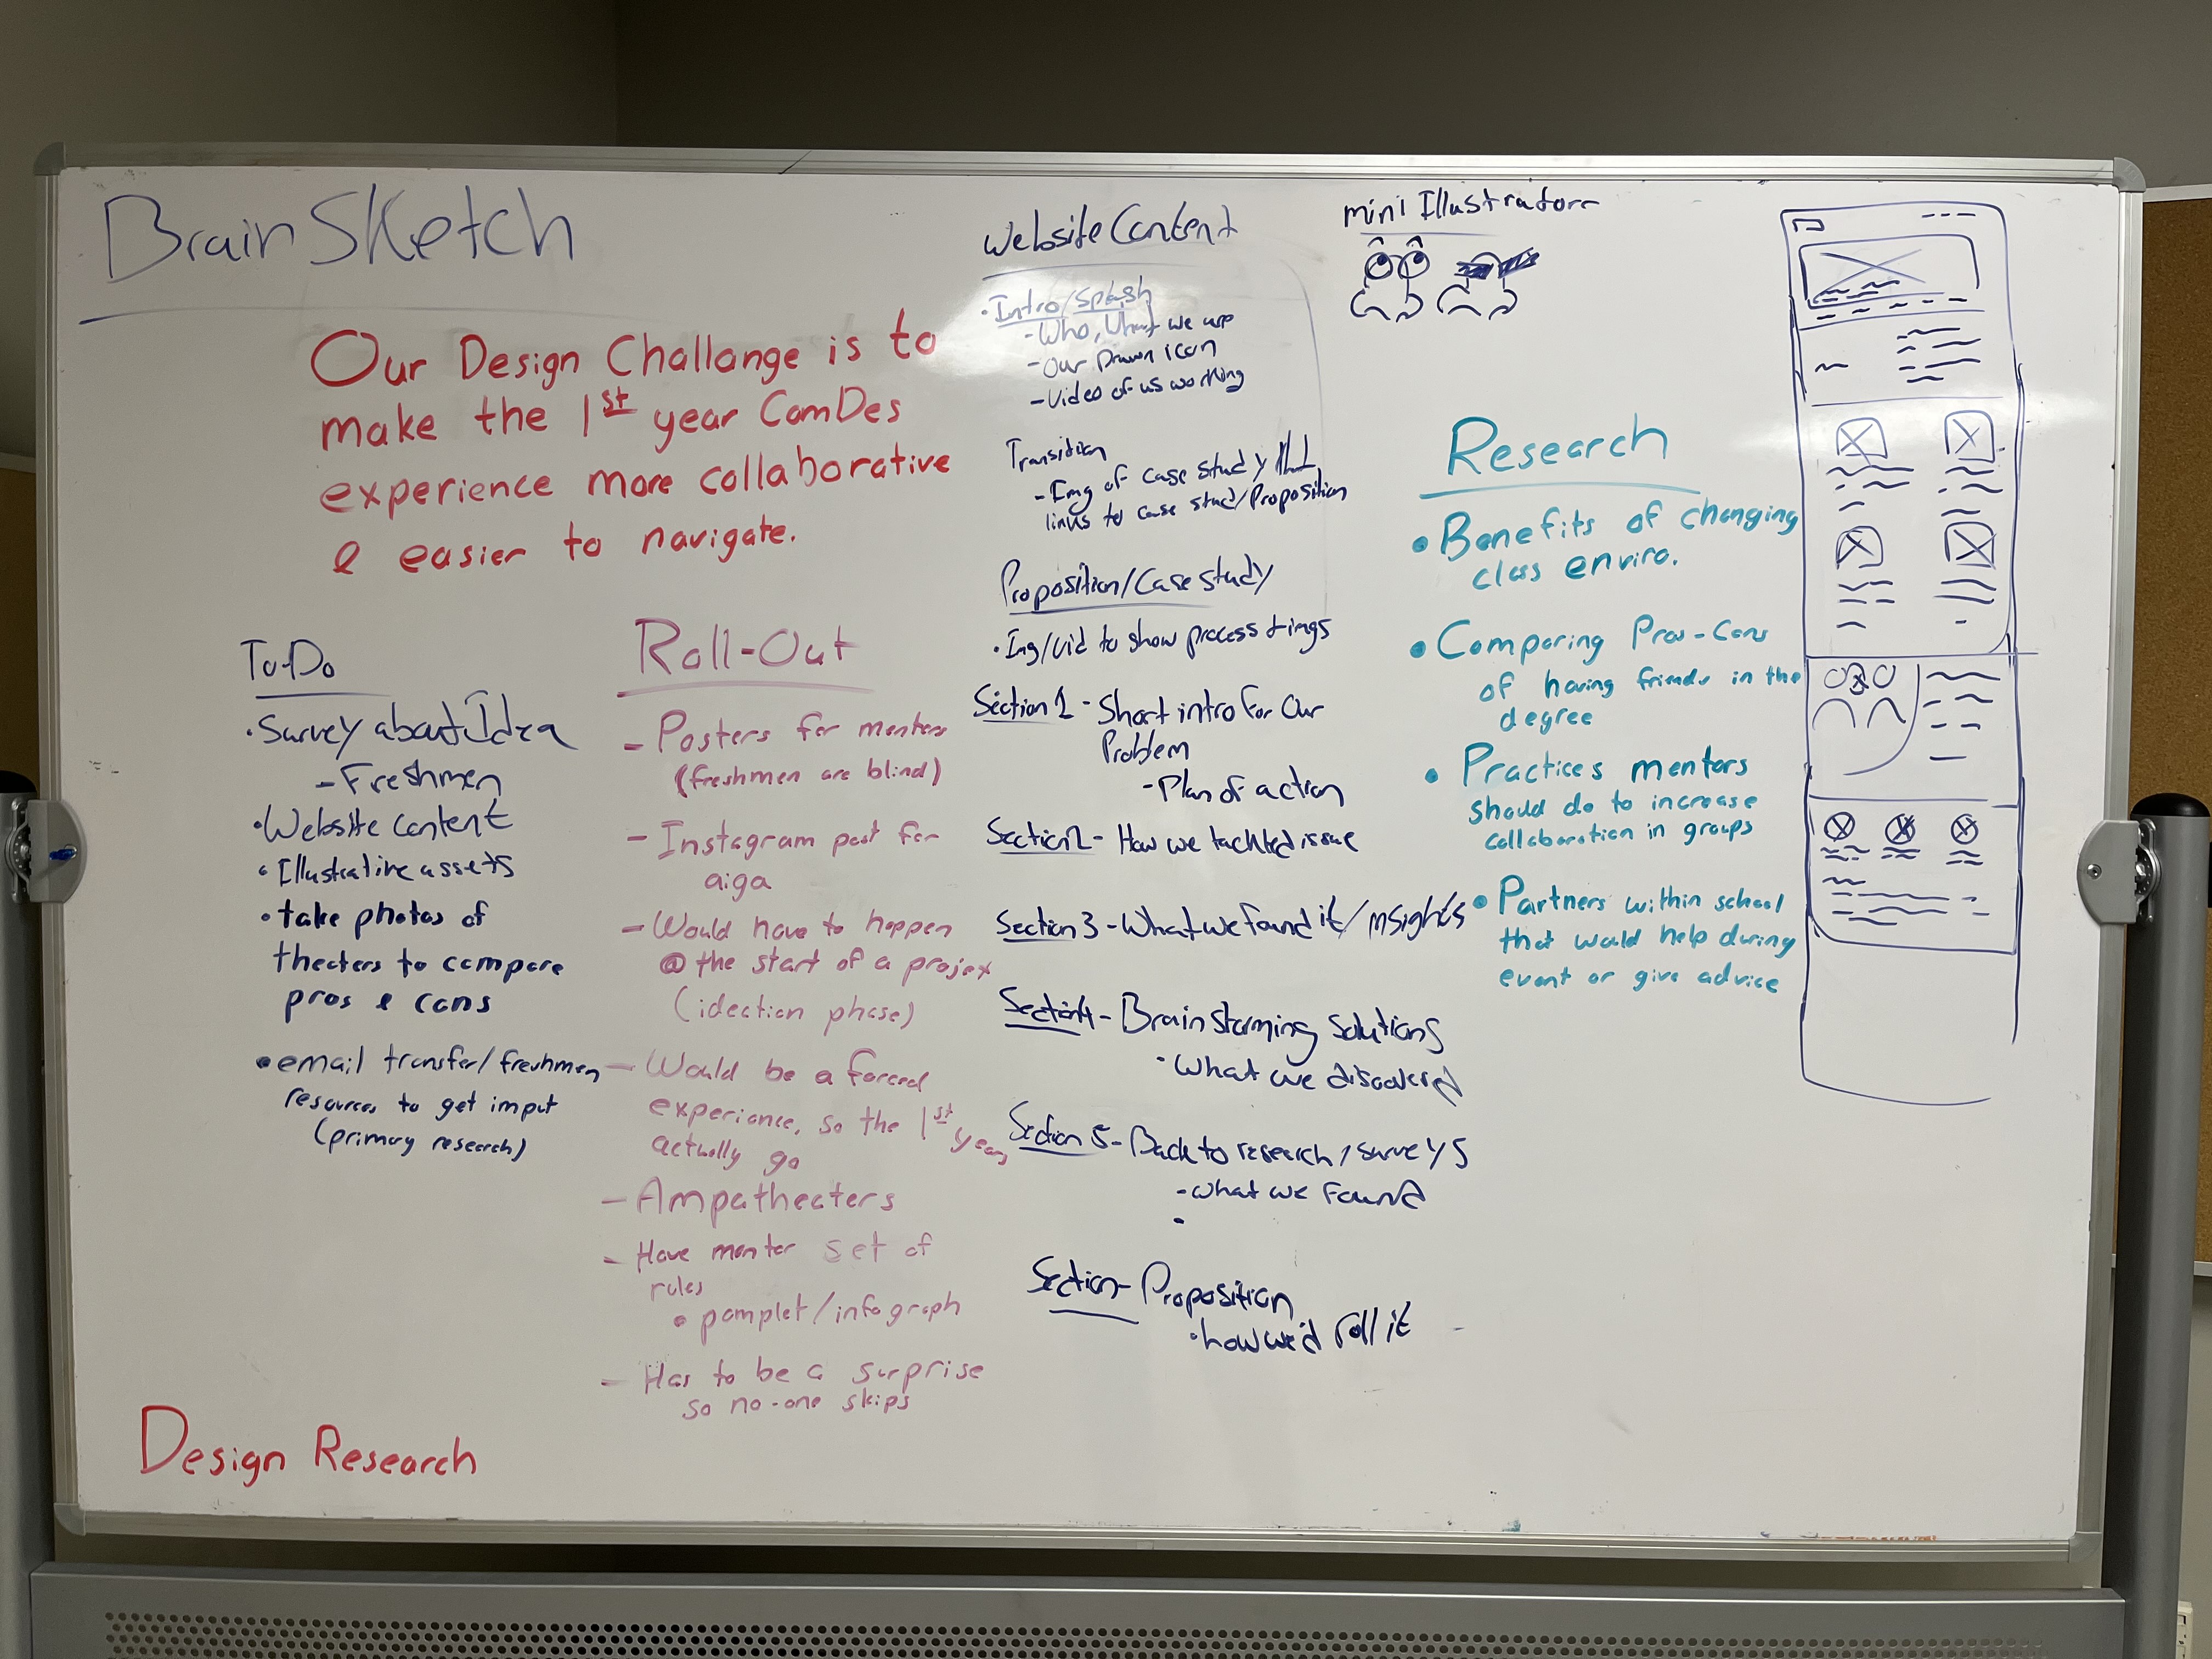 BrainSketch
Our Design Challange is to
make the 1st year ComDes
experience more collaborative
& easier to navigate.
To-Do
·Survey about Idea
-Freshmen
·Website content
·Illustrative assets
•take photos of
theaters to compare
pros & cons
•email transfer/freshmen
resources to get imput
(primary research)
Design Research
Roll-Out
- Posters for mentors
(freshmen are blind)
- Instagram post for
aiga
- Would have to happen
@ the start of a projex
(idection phase)
- Would be a forced
experience, so the 1st years
actually go
- Ampatheaters
- Have mentor set of
rules
• pamplet/infograph
- Has to be a surprise
so no-one skips
Website Content
·Intro/Splash
-Who, What we are
-Our Drawn icon
-Video of us working
Transition
-Img of case study
links to case stud/Proposition
Proposition/Case study
·Img/vid to show process + imgs
Section 1 - Short intro for Our
Problem
-Plan of action
Section 2 - How we tackled issue
Section 3 - What we found it/insights
Section 4 - Brain storming solutions
·What we discovered
Section 5 - Back to research / surveys
-what we found
Section - Proposition
·how we'd roll it
mini Illustrator
Research
• Benefits of changing
class enviro.
• Comparing Pros-Cons
of having friends in the
degree
• Practices mentors
should do to increase
collaboration in groups
• Partners within school
that would help during
event or give advice